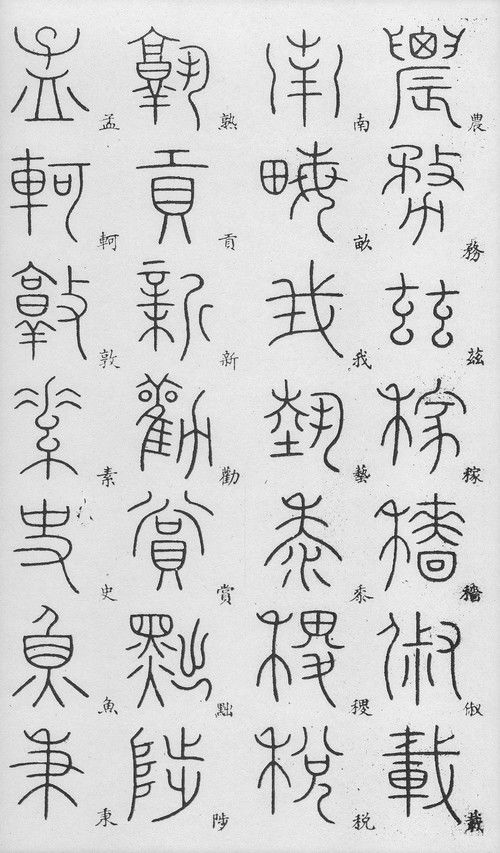 農務兹稼穡俶載
南畝我藝黍稷税
熟貢新勸賞黜陟
孟軻敦素史魚秉